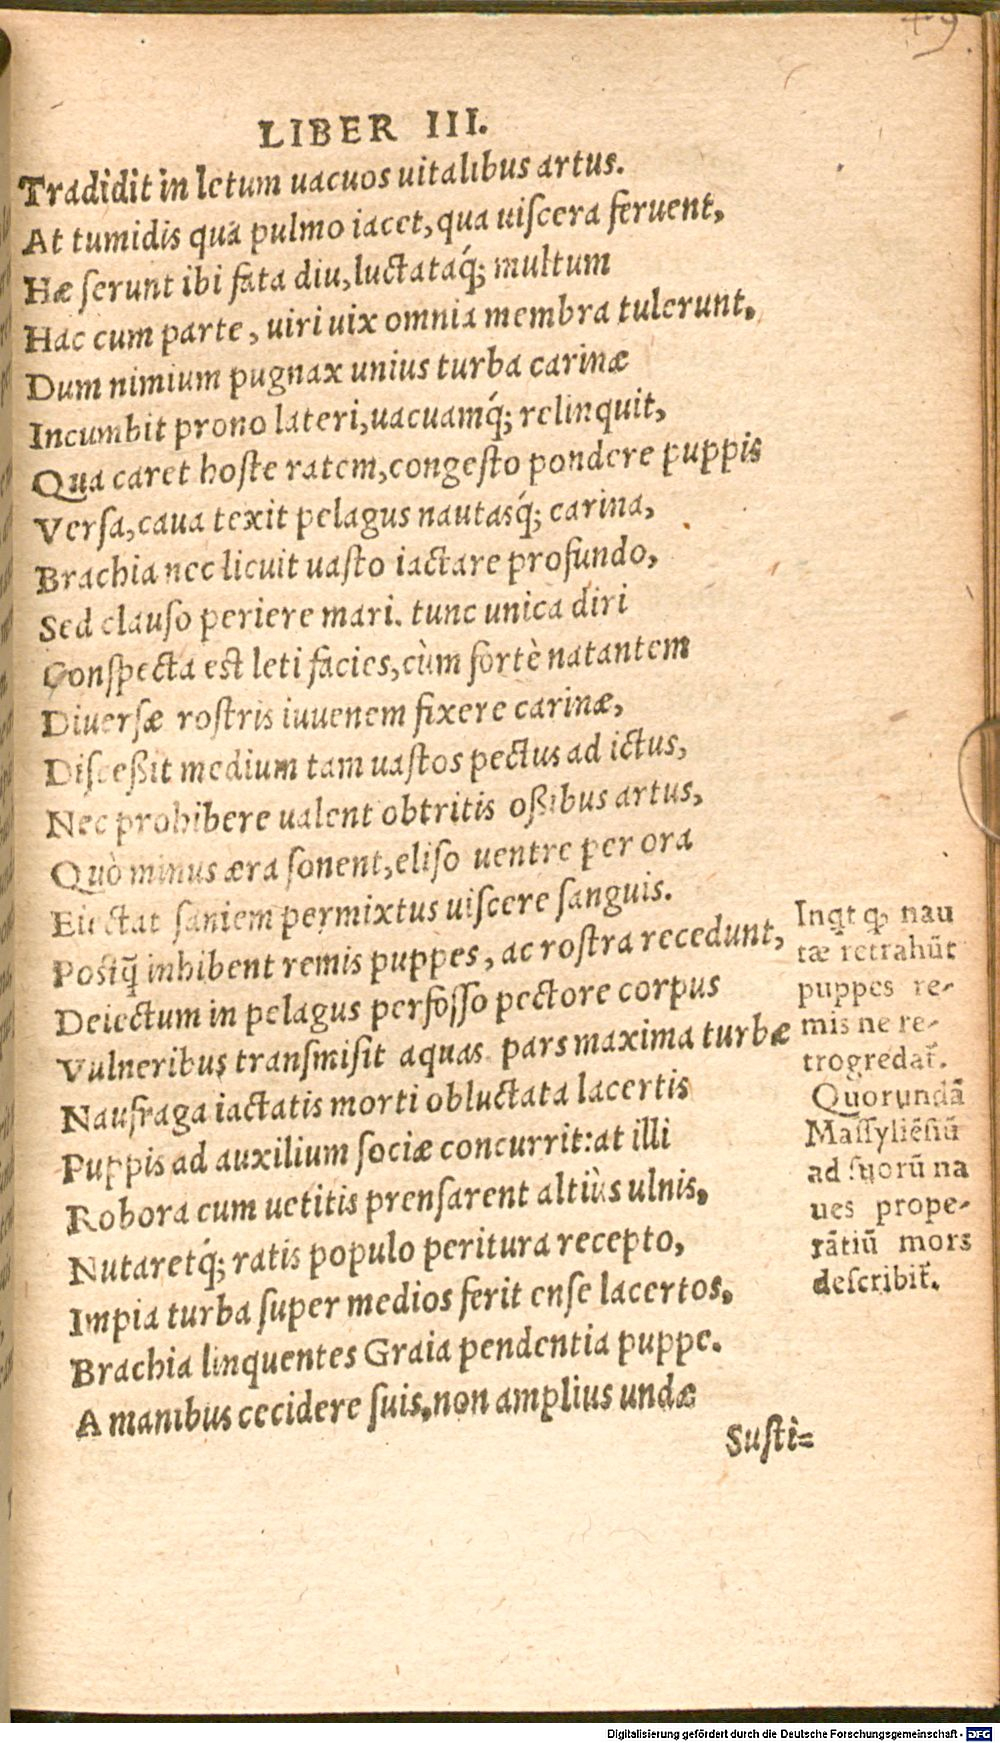 49
LIBER III.
Tradidit in letum uacuos uitalibus artus.
At tumidis qua pulmo iacet, qua uiſcera feruent,
Hæ ſerunt ibi fata diu, luctataq́; multum
Hac cum parte, uiri uix omnia membra tulerunt.
Dum nimium pugnax unius turba carinæ
Incumbit prono lateri, uacuamq́; relinquit,
Qua caret hoſte ratem, congeſto pondere puppis
Verſa, caua texit pelagus nautasq́; carina,
Brachia nec licuit uaſto iactare profundo,
Sed clauſo periere mari. tunc unica diri
Conſpecta eſt leti facies, cùm fortè natantem
Diuerſæ roſtris iuuenem fixere carinæ,
Diſceßit medium tam uaſtos pectus ad ictus,
Nec prohibere ualent obtritis oßibus artus,
Quò minus æra ſonent, eliſo uentre per ora
Eiectat ſaniem permixtus uiſcere ſanguis.
Poſtq̃ inhibent remis puppes, ac roſtra recedunt,
Deiectum in pelagus perfoſſo pectore corpus
Vulneribus tranſmiſit aquas. pars maxima turbæ
Naufraga iactatis morti obluctata lacertis
Puppis ad auxilium ſociæ concurrit: at illi
Robora cum uetitis prenſarent altiùs ulnis,
Nutaretq́; ratis populo peritura recepto,
Impia turba ſuper medios ferit enſe lacertos,
Brachia linquentes Graia pendentia puppe.
A manibus cecidere ſuis, non amplius undæ
Suſti=
Inqt ꝙ nau
tæ retrahũt
puppes re-
mis ne re-
trogredat̃.
Quorundã
Maſſyliẽſiũ
ad ſuorũ na
ues prope-
rãtiũ mors
deſcribit̃.
Digitalisierung gefördert durch die Deutsche Forschungsgemeinschaft - DFG